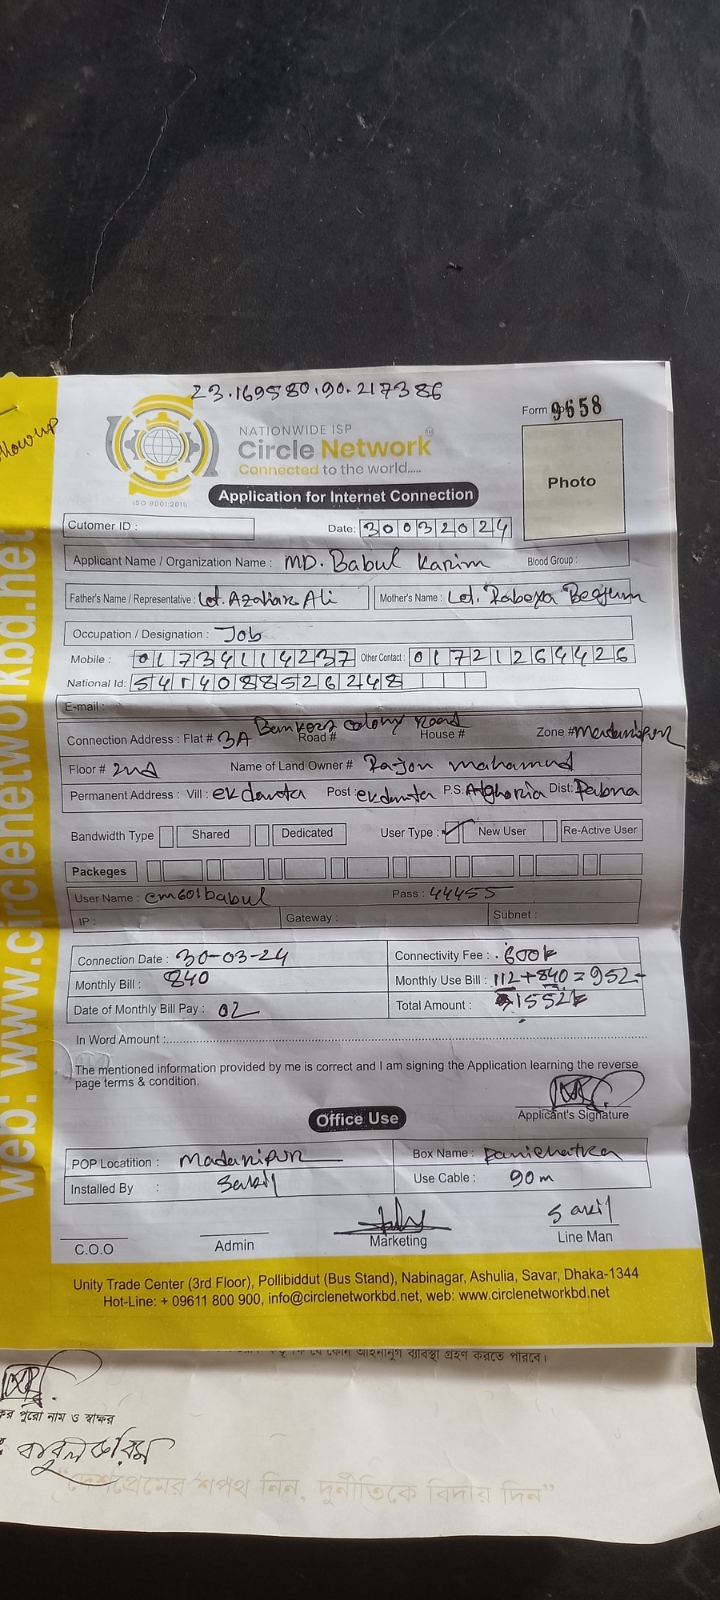 23.169580,90.217386
Form 9658
NATIONWIDE ISP
Circle Network
Connected to the world.....
ISO 9001:2015
Application for Internet Connection
Photo
Cutomer ID :
Date: 30032024
Applicant Name / Organization Name : MD. Babul Karim Blood Group :
Father's Name / Representative : Let. Azahar Ali Mother's Name : Let. Rabeya Begum
Occupation / Designation : Job
Mobile : 01734114237 Other Contact : 01721264426
National Id: 5414088526248
E-mail :
Connection Address : Flat # 3A Bankers colony Road Road # House # Zone # Madanipur
Floor # 2nd Name of Land Owner # Rajon mahamud
Permanent Address : Vill : ekdanta Post : ekdanta P.S. Atghoria Dist: Pabna
Bandwidth Type Shared Dedicated User Type : ✓ New User Re-Active User
Packeges
User Name : cm601babul Pass : 44455
IP : Gateway : Subnet :
Connection Date : 30-03-24 Connectivity Fee : 600
Monthly Bill : 840 Monthly Use Bill : 112+840=952
Date of Monthly Bill Pay : 02 Total Amount : 1552
In Word Amount :
The mentioned information provided by me is correct and I am signing the Application learning the reverse
page terms & condition.
Applicant's Signature
Office Use
POP Locatition : Madanipur Box Name : Panichatka
Installed By : Sakil Use Cable : 90m
Sakil
C.O.O Admin Marketing Line Man
Unity Trade Center (3rd Floor), Pollibiddut (Bus Stand), Nabinagar, Ashulia, Savar, Dhaka-1344
Hot-Line: + 09611 800 900, info@circlenetworkbd.net, web: www.circlenetworkbd.net
web: www.circlenetworkbd.net
ব্যবস্থা গ্রহণ করতে পারবে।
পুরো নাম ও স্বাক্ষর
বাবুল করিম
"দেশপ্রেমের শপথ নিন, দুর্নীতিকে বিদায় দিন"